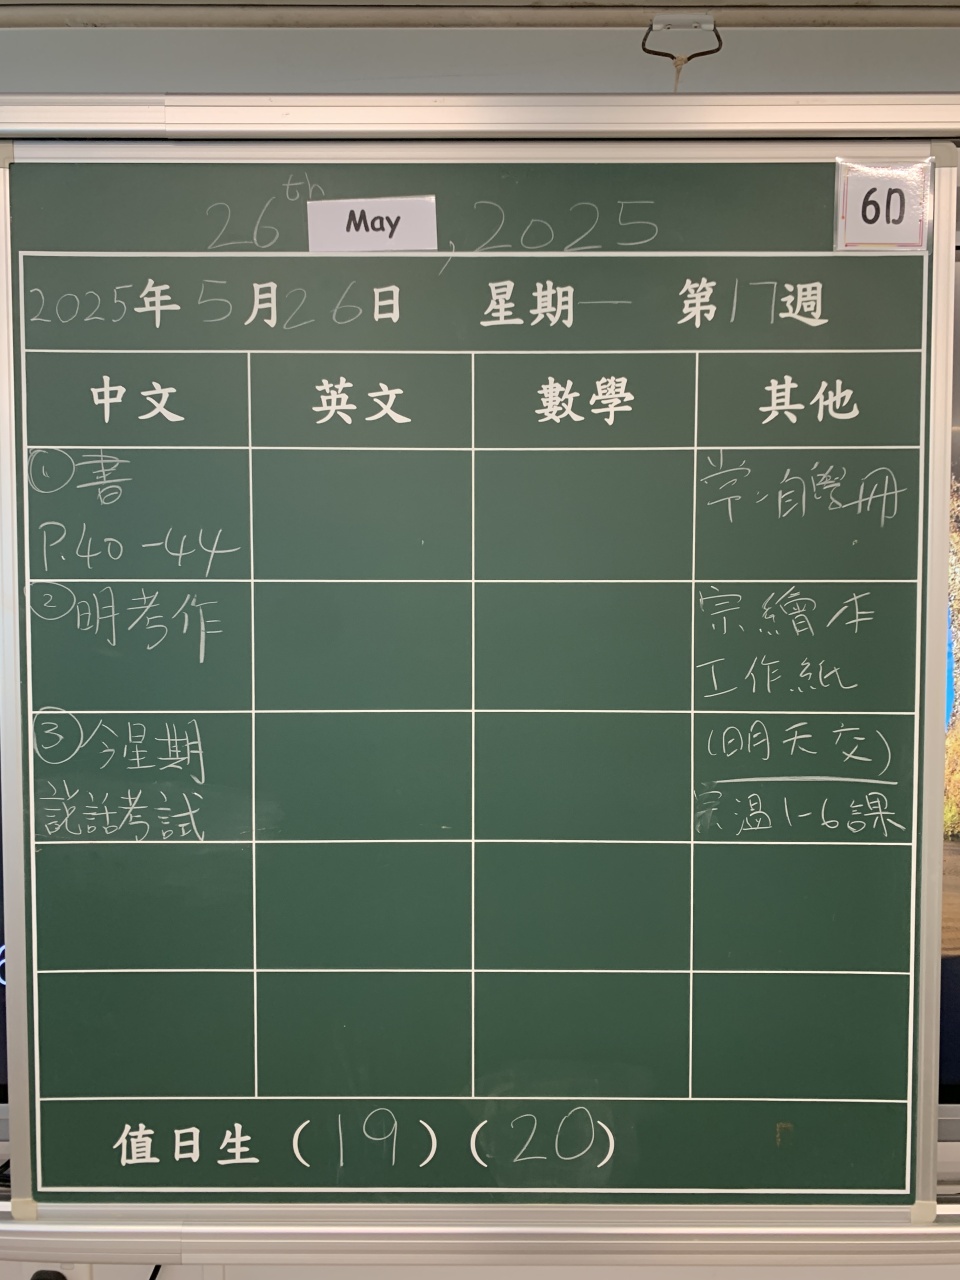 26th May, 2025
6D
2025年5月26日 星期一 第17週
中文 英文 數學 其他
①書
P.40-44
②明考作
③今星期
說話考試
常:自學冊
宗繪本
工作紙
(明天交)
宗溫1-6課
值日生 (19) (20)